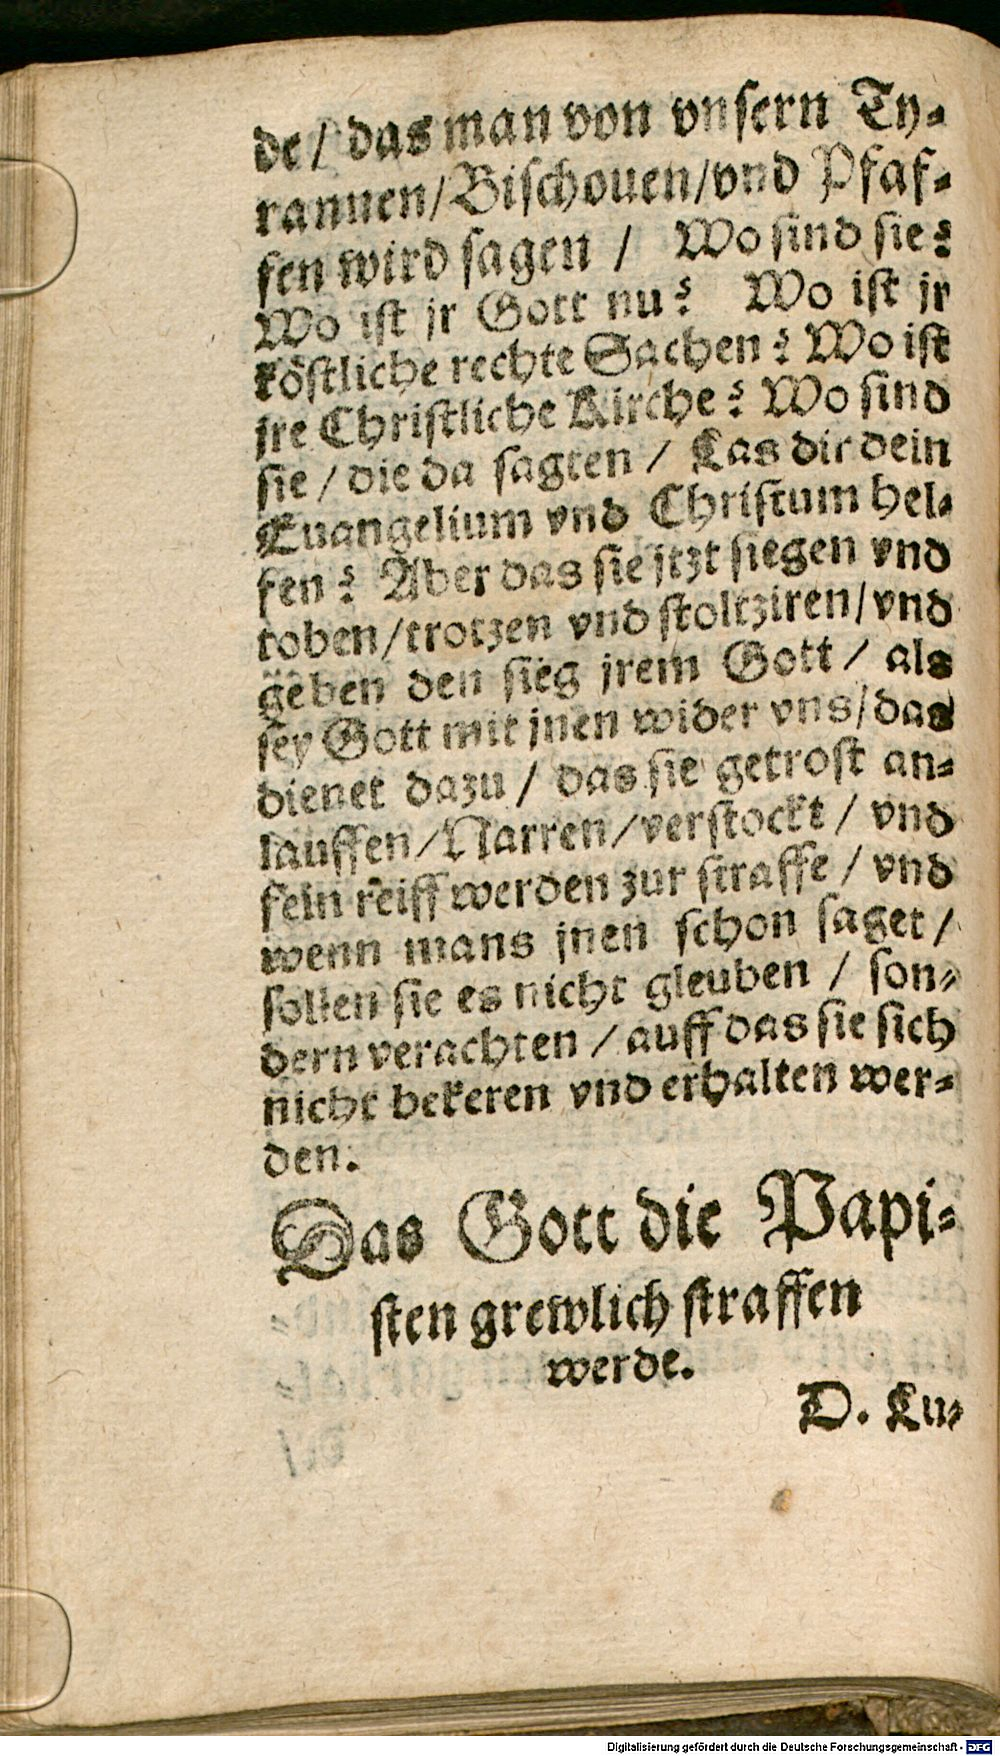 de / das man von vnsern Ty-
rannen/Bischouen/vnd Pfaf-
fen wird sagen / Wo sind sie?
Wo ist jr Gott nu? Wo ist jr
köstliche rechte Sachen? Wo ist
jre Christliche Kirche? Wo sind
sie / die da sagten / Las dir dein
Euangelium vnd Christum hel-
fen? Aber das sie jtzt siegen vnd
toben/trotzen vnd stoltziren/vnd
geben den sieg jrem Gott / als
sey Gott mit jnen wider vns/das
dienet dazu / das sie getrost an-
lauffen/Narren/verstockt / vnd
fein reiff werden zur straffe / vnd
wenn mans jnen schon saget /
sollen sie es nicht gleuben / son-
dern verachten / auff das sie sich
nicht bekeren vnd erhalten wer-
den.
Das Gott die Papi-
sten grewlich straffen
werde.
D. Lu-
Digitalisierung gefördert durch die Deutsche Forschungsgemeinschaft - DFG